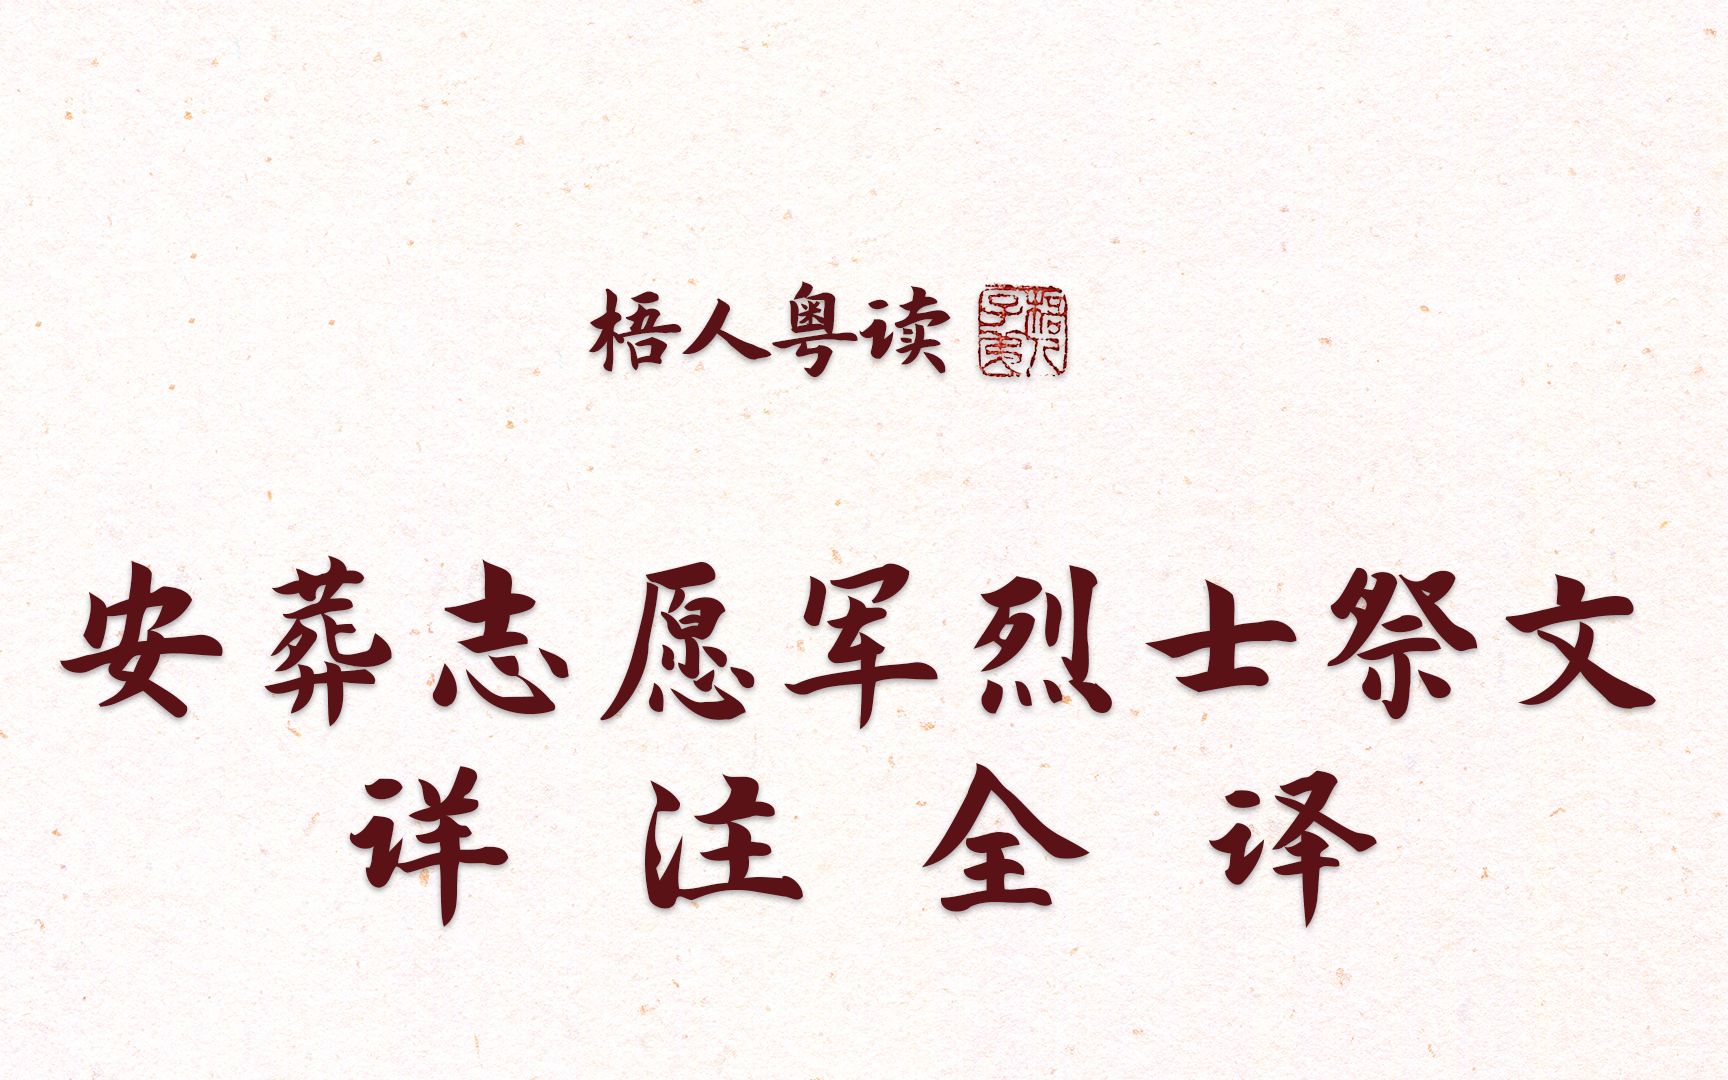 梧人粤读
安葬志愿军烈士祭文
详注全译